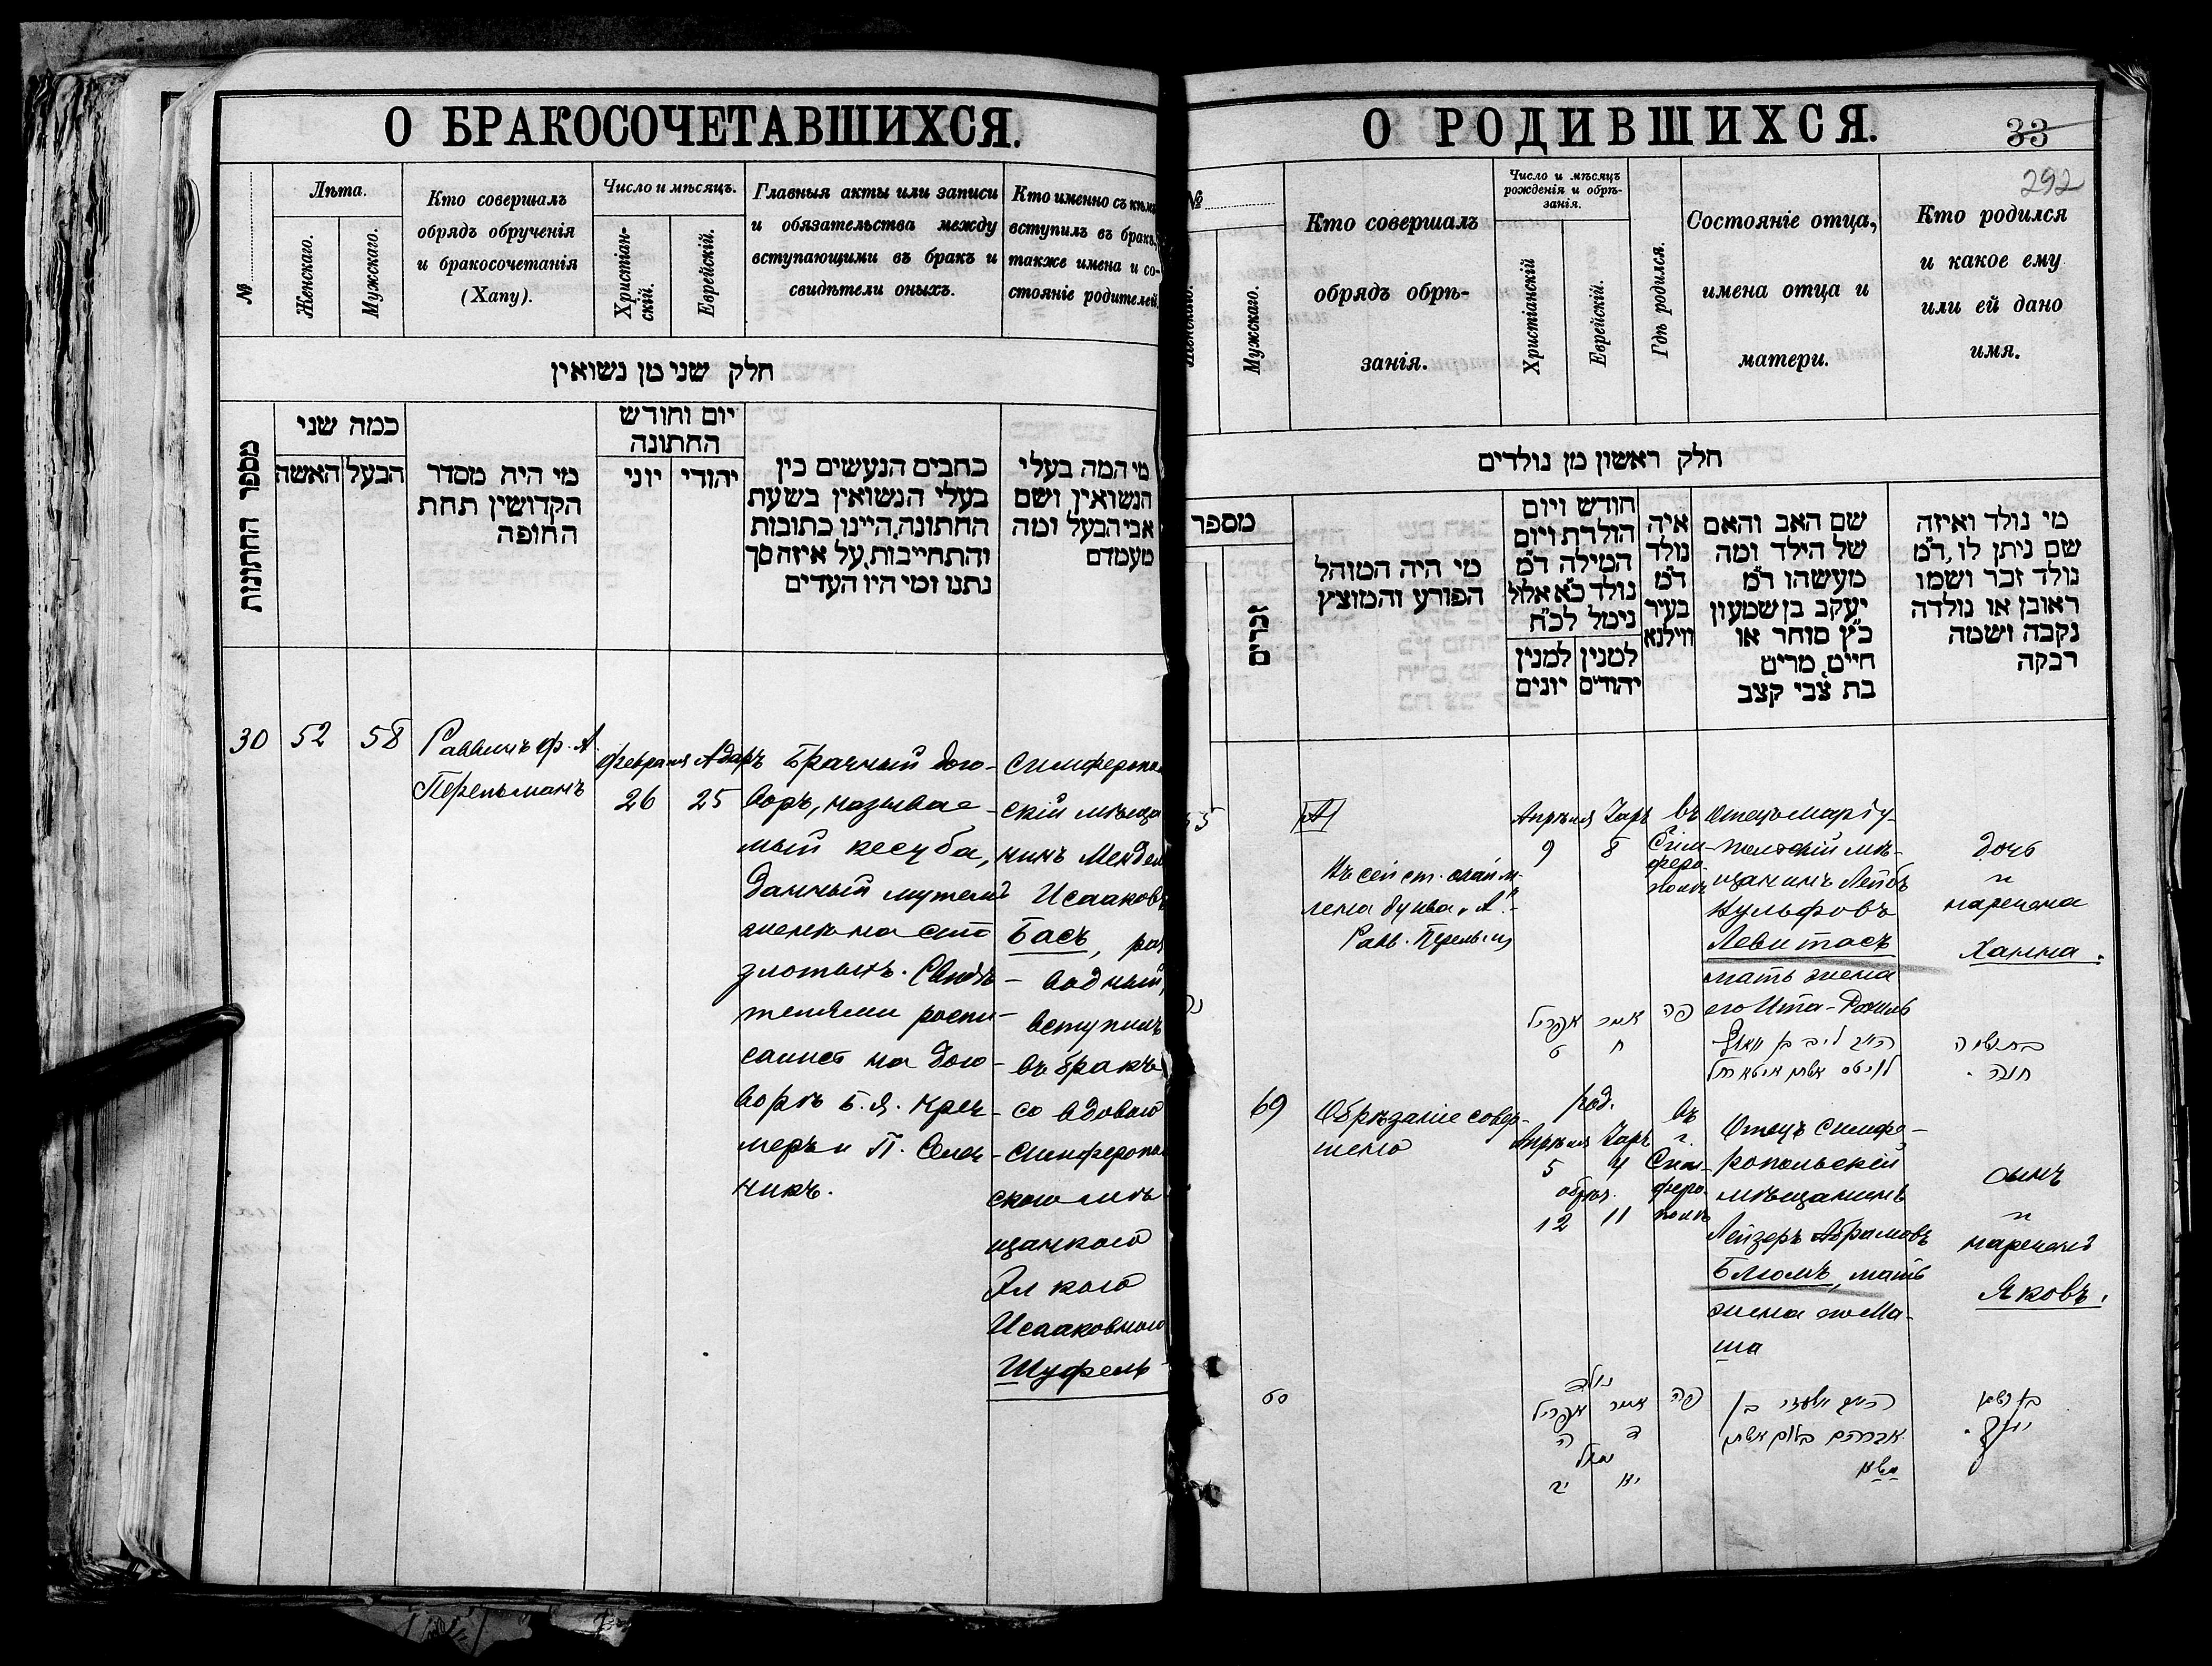 О БРАКОСОЧЕТАВШИХСЯ.
№
Лѣта.
Женскаго.
Мужскаго.
Кто совершалъ
обрядъ обрученія
и бракосочетанія
(Хапу).
Число и мѣсяцъ.
Христіан-
скій.
Еврейскій.
Главныя акты или записи
и обязательства между
вступающими въ бракъ и
свидѣтели оныхъ.
Кто именно съ кѣмъ
вступилъ въ бракъ,
также имена и со-
стояніе родителей.
חלק שני מן נשואין
מספר החתונות
כמה שני
האשה
הבעל
מי היה מסדר
הקדושין תחת
החופה
יום וחודש
החתונה
יוני
יהודי
כתבים הנעשים בין
בעלי הנשואין בשעת
החתונה, היינו כתובות
והתחייבות, על איזה סך
נתנו ומי היו העדים
מי המה בעלי
הנשואין ושם
אבי הבעל ומה
מעמדם
30
52
58
Раввинъ Ф. А.
Перельманъ
Февраля
26
Адаръ
25
Брачный дого-
воръ, называе-
мый кесуба,
данный мужемъ
женѣ на сто
злотыхъ. Свидѣ-
телями роспи-
сались на дого-
ворѣ Б. Я. Креч-
меръ и П.
никъ.
Симферопол
скій мѣща
нинъ Мендел
Исааковъ
Басъ, раз
водный,
вступилъ
въ бракъ
со вдовою
Симферопол
скою мѣ
щанкою
Элькою
Исааковною
Шуфель
О РОДИВШИХСЯ.
33
292
№
Женскаго.
Мужскаго.
Кто совершалъ
обрядъ обрѣ-
занія.
Число и мѣсяцъ
рожденія и обрѣ-
занія.
Христіанскій
Еврейскій.
Гдѣ родился.
Состояніе отца,
имена отца и
матери.
Кто родился
и какое ему
или ей дано
имя.
חלק ראשון מן נולדים
מספר
זכרים
מי היה המוהל
הפורע והמוצץ
חודש ויום
הולדת ויום
המילה ד״מ
נולד כ״א אלול
נימל לכ״ח
למנין
יונים
למנין
יהודים
איה
נולד
ד״מ
בעיר
ווילנא
שם האב והאם
של הילד ומה
מעשהו ד״מ
יעקב בן שמעון
כ״ץ סוחר או
חייט, מרים
בת צבי קצב
מי נולד ואיזה
שם ניתן לו, ד״מ
נולד זכר ושמו
ראובן או נולדה
נקבה ושמה
רבקה
55
А
Въ сей ст.
лена буква „А“.
Равв. Перельман
Апрѣля
9
Іаръ
8
въ
Сим-
феро
полѣ
Отецъ Маріу-
польскій мѣ-
щанинъ Лейбъ
Вульфовъ
Левитасъ
мать жена
его Ита-Рахиль
Дочь
и
наречена
Ханна.
אפריל
ט
אייר
ח
פה
ליב בן וואלף
לויטס אשתו איטא רחל
חנה.
69
Обрѣзаніе совер-
шено
Род.
Апрѣля
5
Іаръ
4
обрѣз.
12
11
въ
г.
Сим-
феро-
полѣ
Отецъ Симфе-
ропольскій
мѣщанинъ
Лейзеръ Абрамовъ
Блюмъ, мать
жена его Ма-
ша
сынъ
и
нареченъ
Яковъ.
סט
נולד
אפריל
ה
אייר
ד
נמול
יב
יא
פה
אליעזר בן
אברהם בלום אשתו
מאשא
יעקב.